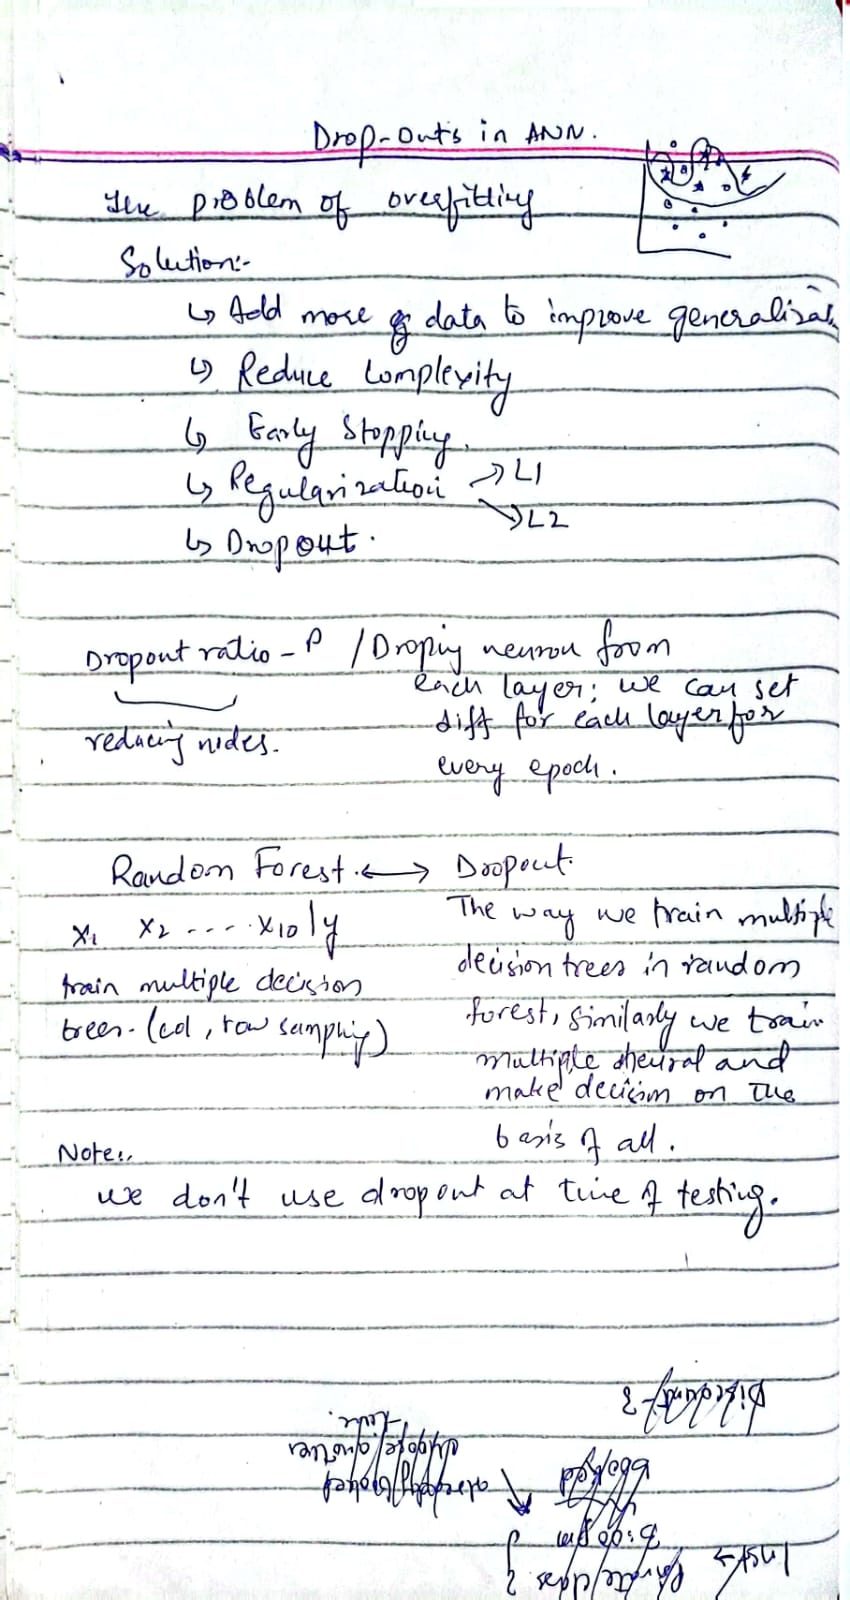 Drop-outs in ANN.
The problem of overfitting
Solution:-
↳ Add more of data to improve generalizat.
↳ Reduce Complexity
↳ Early Stopping.
↳ Regularization → L1
→ L2
↳ Dropout.
Dropout ratio - P / Droping neuron from
each layer; we can set
diff for each layer for
every epoch.
reducing nodes.
Random Forest. ↔ Dropout.
X1 X2 .... X10 | y
train multiple decision
trees. (col, row sampling)
The way we train multiple
decision trees in random
forest, similarly we train
multiple neural and
make decision on the
basis of all.
Note:
we don't use dropout at time of testing.